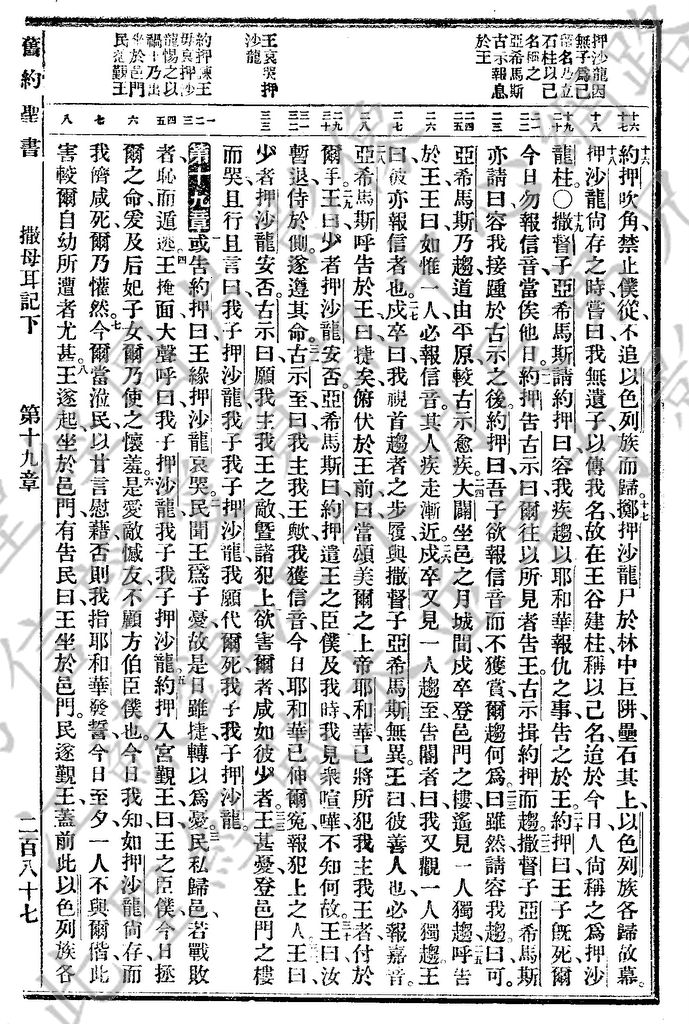 舊約聖書　撒母耳記下　第十九章　二百八十七
押沙龍因
無子爲己
留名乃立
石柱以己
名稱之
亞希馬斯
古示報息
於王
王哀哭押
沙龍
約押諫王
毋哀押沙
龍惕之以
禍王乃出
坐於邑門
民乃覲王
約押吹角禁止僕從不追以色列族而歸擲押沙龍尸於林中巨阱壘石其上以色列族各歸故幕
押沙龍尙存之時嘗曰我無遺子以傳我名故在王谷建柱稱以己名迨於今日人尙稱之爲押沙
龍柱○撒督子亞希馬斯請約押曰容我疾趨以耶和華報仇之事告之於王約押曰王子旣死爾
今日勿報信音當俟他日約押告古示曰爾往以所見者告王古示揖約押而趨撒督子亞希馬斯
亦請曰容我接踵於古示之後約押曰吾子欲報信音而不獲賞爾趨何爲曰雖然請容我趨曰可
亞希馬斯乃趨道由平原較古示愈疾大闢坐邑之月城間戍卒登邑門之樓遙見一人獨趨呼告
於王王曰如惟一人必報信音其人疾走漸近戍卒又見一人趨至告閽者曰我又觀一人獨趨王
曰彼亦報信者也戍卒曰我視首趨者之步履與撒督子亞希馬斯無異王曰彼善人也必報嘉音
亞希馬斯呼告於王曰捷矣俯伏於王前曰當頌美爾之上帝耶和華已將所犯我主我王者付於
爾手王曰少者押沙龍安否亞希馬斯曰約押遣王之臣僕及我時我見衆喧嘩不知何故王曰汝
暫退侍於側遂遵其命古示至曰我主我王歟我獲信音今日耶和華已伸爾寃報犯上之人王曰
少者押沙龍安否古示曰願我主我王之敵曁諸犯上欲害爾者咸如彼少者王甚憂登邑門之樓
而哭且行且言曰我子押沙龍我子我子押沙龍我願代爾死我子我子押沙龍
第十九章或告約押曰王緣押沙龍哀哭民聞王爲子憂故是日雖捷轉以爲憂民私歸邑若戰敗
者恥而遁逃王掩面大聲呼曰我子押沙龍我子我子押沙龍約押入宮覲王曰王之臣僕今日拯
爾之命爰及后妃子女爾乃使之懷羞是愛敵憾友不顧方伯臣僕也今日我知如押沙龍尙存而
我儕咸死爾乃懽然今爾當涖民以甘言慰藉否則我指耶和華發誓今日至夕一人不與爾偕此
害較爾自幼所遭者尤甚王遂起坐於邑門有告民曰王坐於邑門民遂覲王蓋前此以色列族各